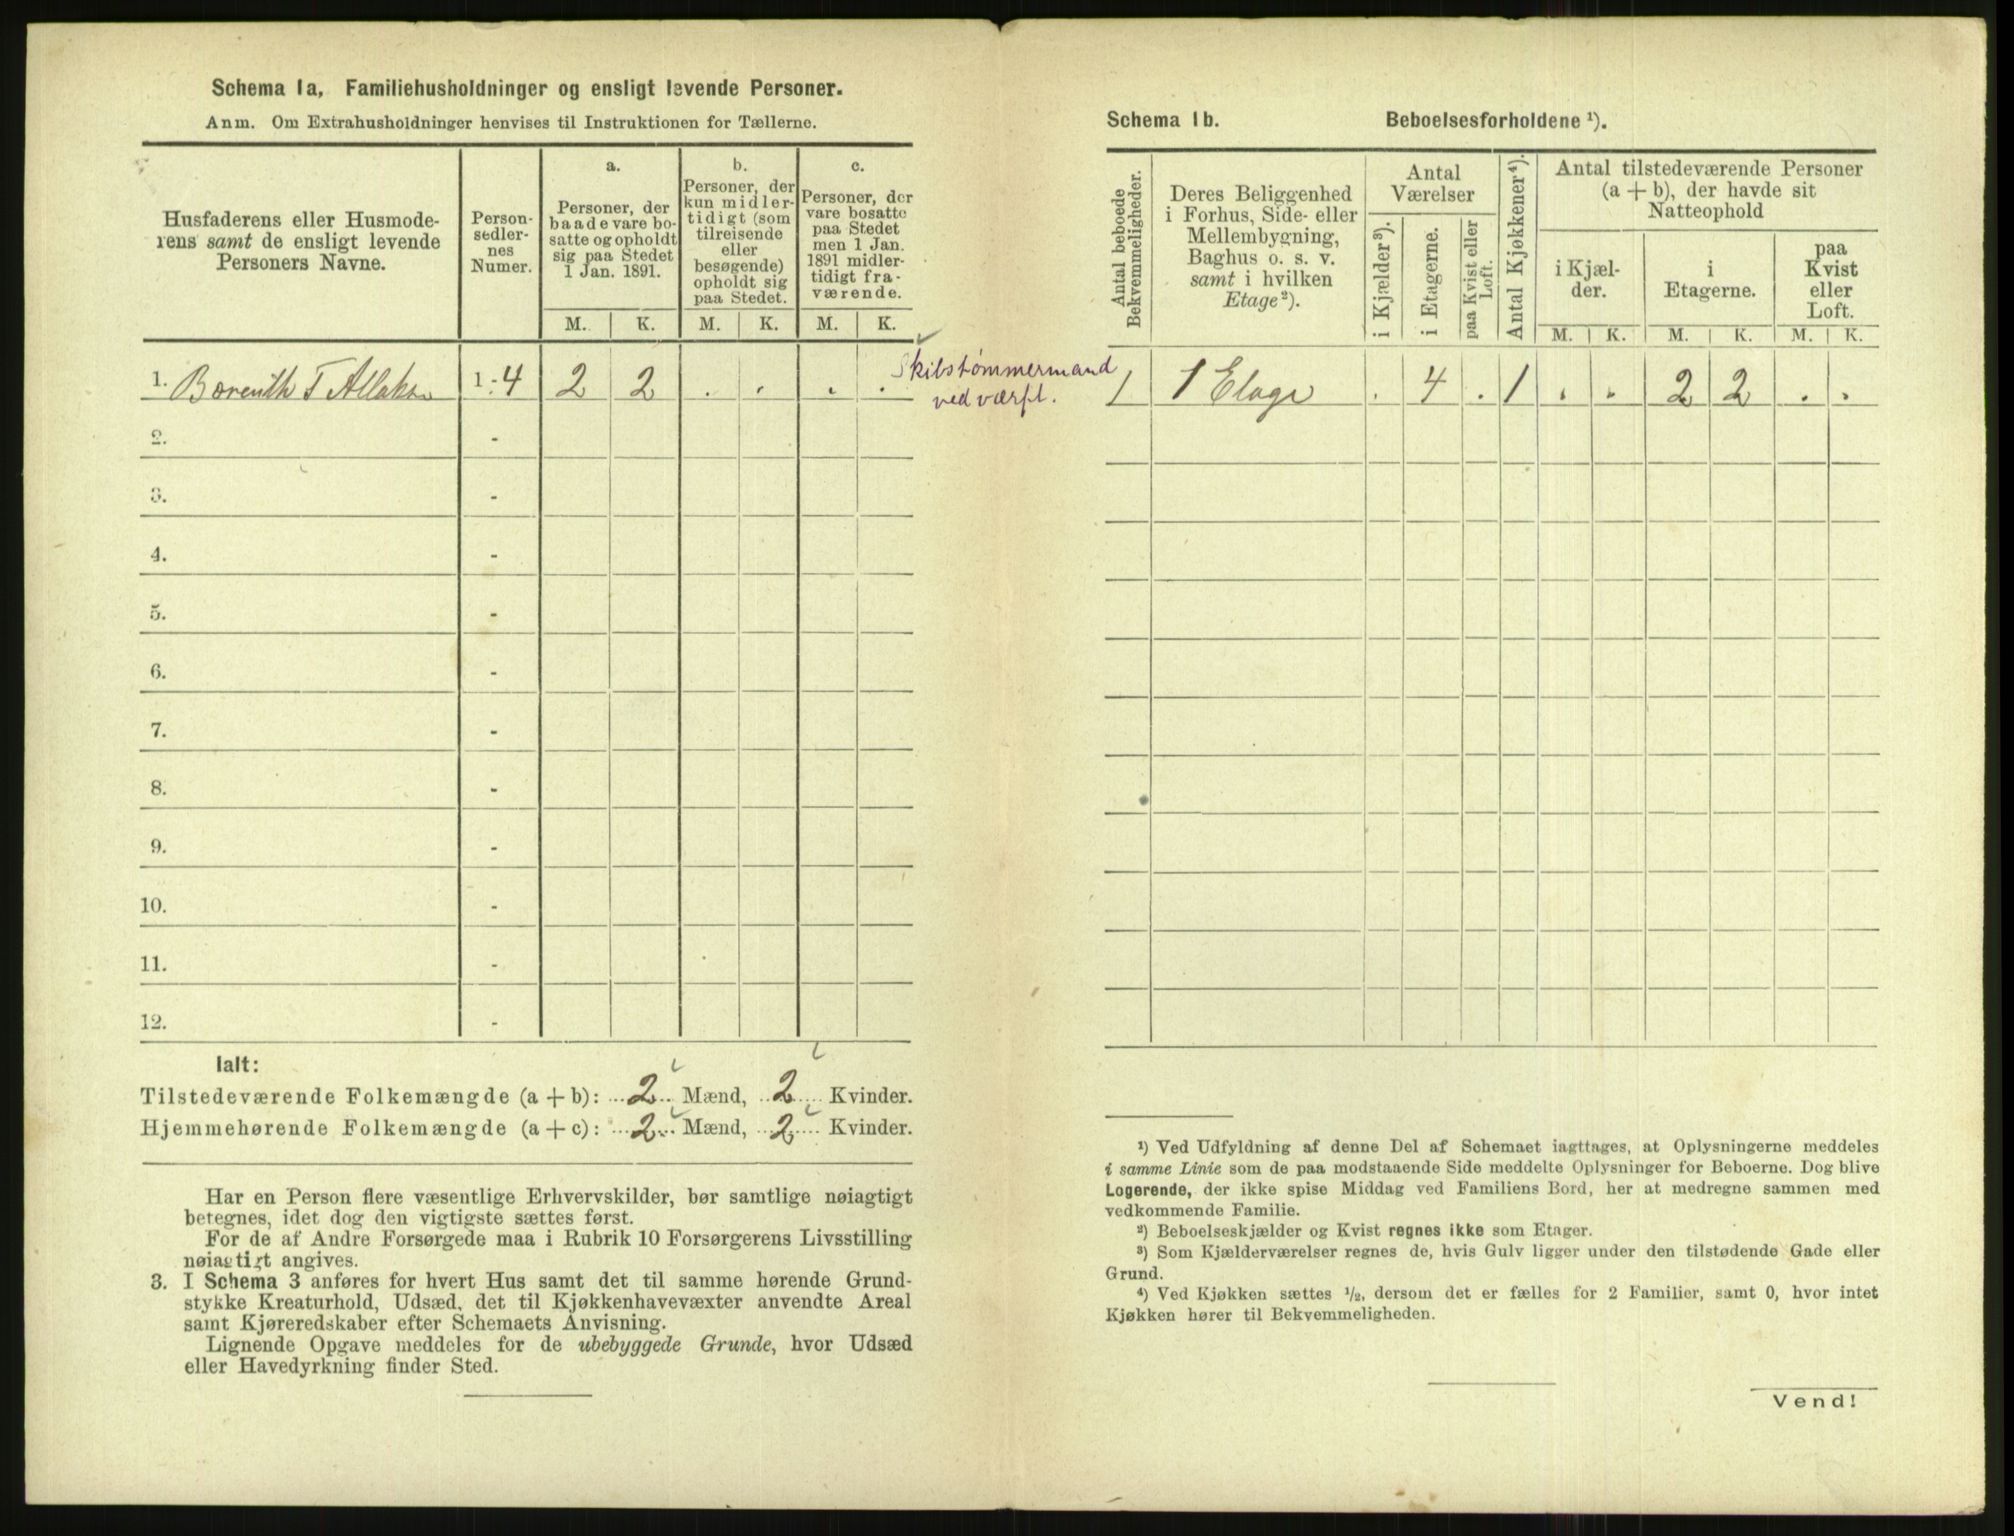 Schema 1a, Familiehusholdninger og ensligt levende Personer.
Anm. Om Extrahusholdninger henvises til Instruktionen for Tællerne.
Husfaderens eller Husmode-
rens samt de ensligt levende
Personers Navne.
Person-
sedler-
nes
Numer.
a.
Personer, der
baade vare bo-
satte og opholdt
sig paa Stedet
1 Jan. 1891.
b.
Personer, der
kun midler-
tidigt (som
tilreisende
eller
besøgende)
opholdt sig
paa Stedet.
c.
Personer, der
vare bosatte
paa Stedet
men 1 Jan.
1891 midler-
tidigt fra-
værende.
M. K. M. K. M. K.
1. T 1.-4 2 2 . . . .
Skibstømmermand
ved værft.
2. -
3. -
4. -
5. -
6. -
7. -
8. -
9. -
10. -
11. -
12. -
Ialt:
Tilstedeværende Folkemængde (a + b): 2 Mænd, 2 Kvinder.
Hjemmehørende Folkemængde (a + c): 2 Mænd, 2 Kvinder.
Har en Person flere væsentlige Erhvervskilder, bør samtlige nøiagtigt
betegnes, idet dog den vigtigste sættes først.
For de af Andre Forsørgede maa i Rubrik 10 Forsørgerens Livsstilling
nøiagtigt angives.
3. I Schema 3 anføres for hvert Hus samt det til samme hørende Grund-
stykke Kreaturhold, Udsæd, det til Kjøkkenhavevæxter anvendte Areal
samt Kjøreredskaber efter Schemaets Anvisning.
Lignende Opgave meddeles for de ubebyggede Grunde, hvor Udsæd
eller Havedyrkning finder Sted.
Schema 1b. Beboelsesforholdene ¹).
Antal beboede
Bekvemmeligheder.
Deres Beliggenhed
i Forhus, Side- eller
Mellembygning,
Baghus o. s. v.
samt i hvilken
Etage²).
Antal
Værelser
i Kjælder³).
i Etagerne.
paa Kvist eller
Loft.
Antal Kjøkkener⁴).
Antal tilstedeværende Personer
(a + b), der havde sit
Natteophold
i Kjæl-
der.
i
Etagerne.
paa
Kvist
eller
Loft.
M. K. M. K. M. K.
1 1 Etage . 4 . 1 . . 2 2 . .
¹) Ved Udfyldning af denne Del af Schemaet iagttages, at Oplysningerne meddeles
i samme Linie som de paa modstaaende Side meddelte Oplysninger for Beboerne. Dog blive
Logerende, der ikke spise Middag ved Familiens Bord, her at medregne sammen med
vedkommende Familie.
²) Beboelseskjælder og Kvist regnes ikke som Etager.
³) Som Kjælderværelser regnes de, hvis Gulv ligger under den tilstødende Gade eller
Grund.
⁴) Ved Kjøkken sættes ½, dersom det er fælles for 2 Familier, samt 0, hvor intet
Kjøkken hører til Bekvemmeligheden.
Vend!